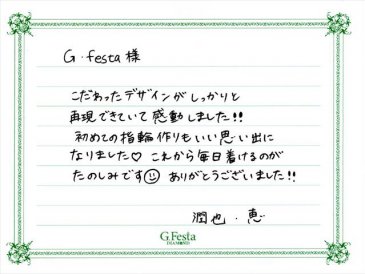 G.festa 様
こだわったデザインがしっかりと
再現できていて感動しました!!
初めての指輪作りもいい思い出に
なりました♡ これから毎日着けるのが
たのしみです☺ ありがとうございました!!
潤也・恵
G.Festa
DIAMOND